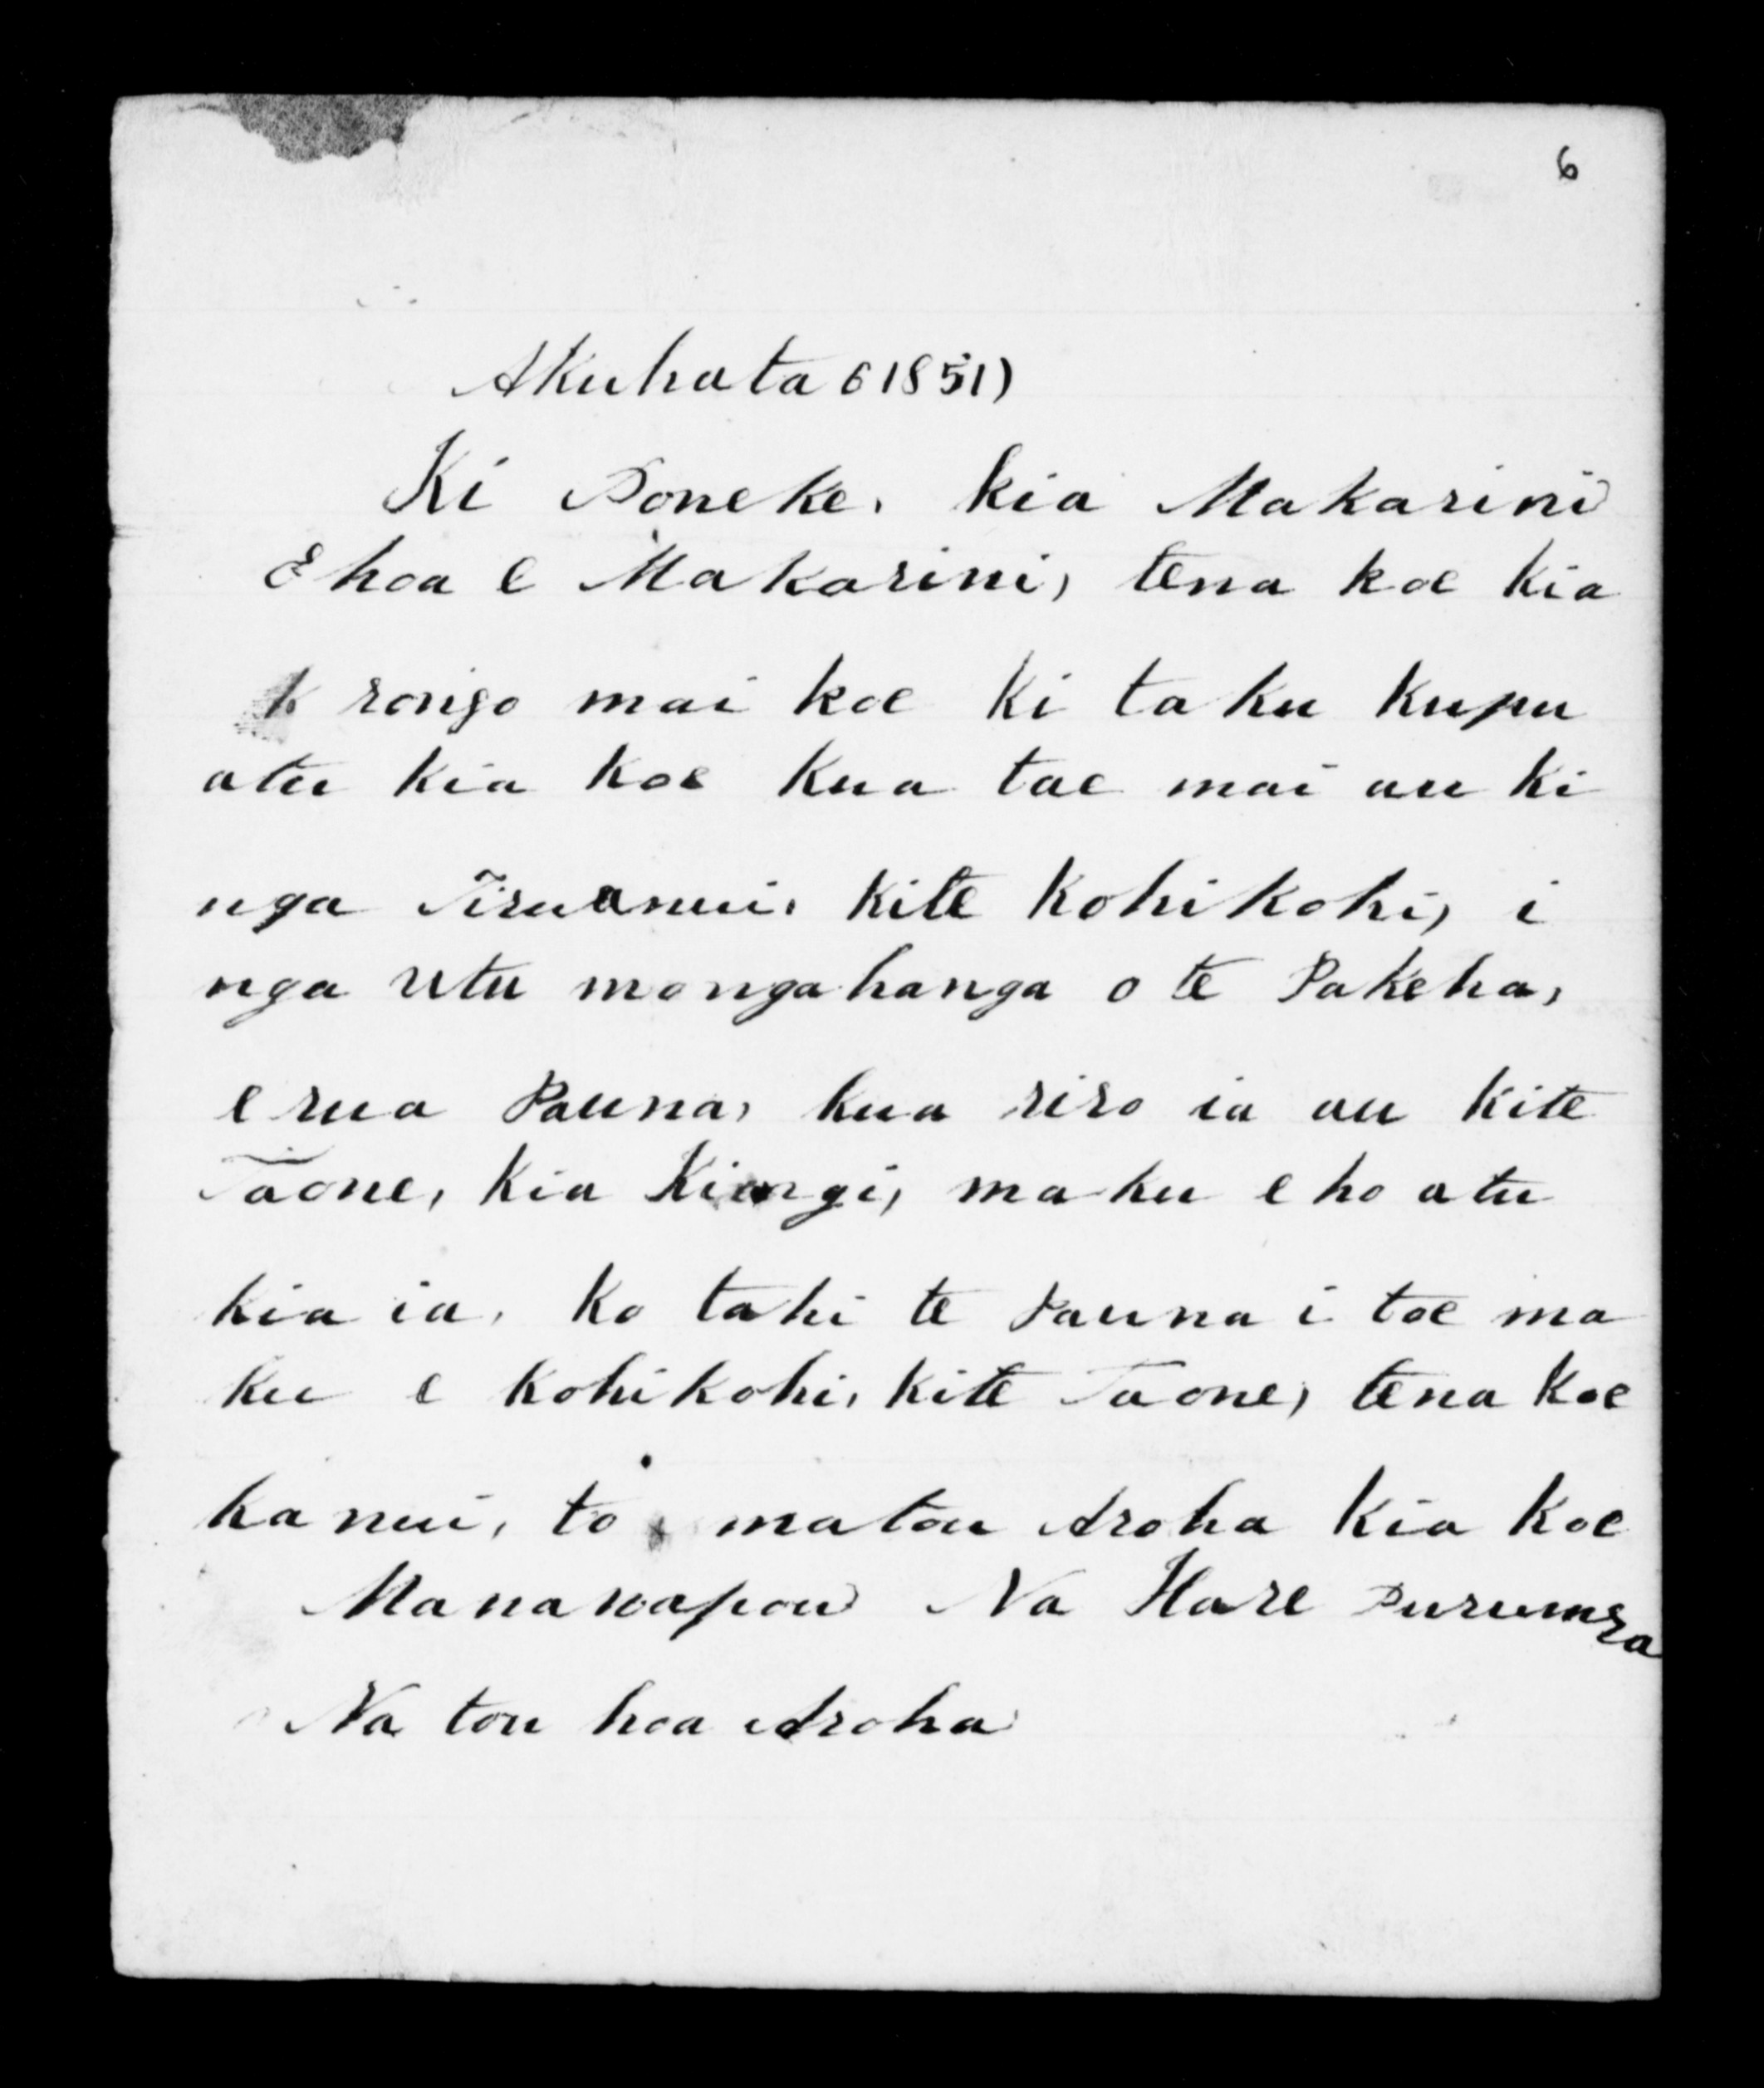 6
Akuhata 6 1851)
Ki Poneke, kia Makarini
E hoa e Makarini, tena koe kia
rongo mai koe ki taku kupu
atu kia koe kua tae mai au ki
nga Tiruanui, kite kohikohi, i
nga utu mongahanga o te Pakeha,
e rua Pauna, kua riro ia au kite
Taone, kia Kingi, ma ku e ho atu
kia ia, ko tahi te Pauna i toe ma
ku e kohikohi, kite Taone, tena koe
ka nui, to matou Aroha kia koe
Manawapou Na Hare
Na tou hoa Aroha